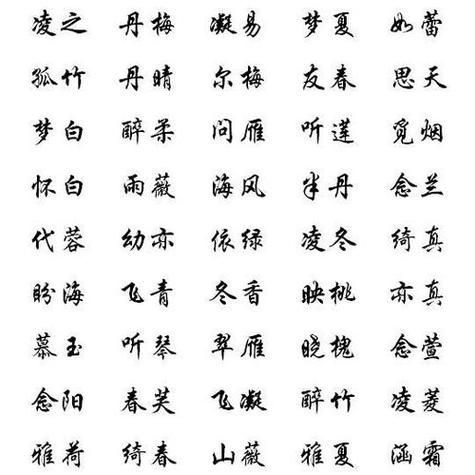 凌之 丹梅 凝易 梦夏 如蕾
孤竹 丹晴 尔梅 友春 思天
梦白 醉柔 问雁 听莲 觅烟
怀白 雨薇 海风 半丹 念兰
代蓉 幼亦 依绿 凌冬 绮真
盼海 飞青 冬香 映桃 亦真
慕玉 听琴 翠雁 晓槐 念萱
念阳 春芙 飞凝 醉竹 凌菱
雅荷 绮春 山薇 雅夏 涵霜